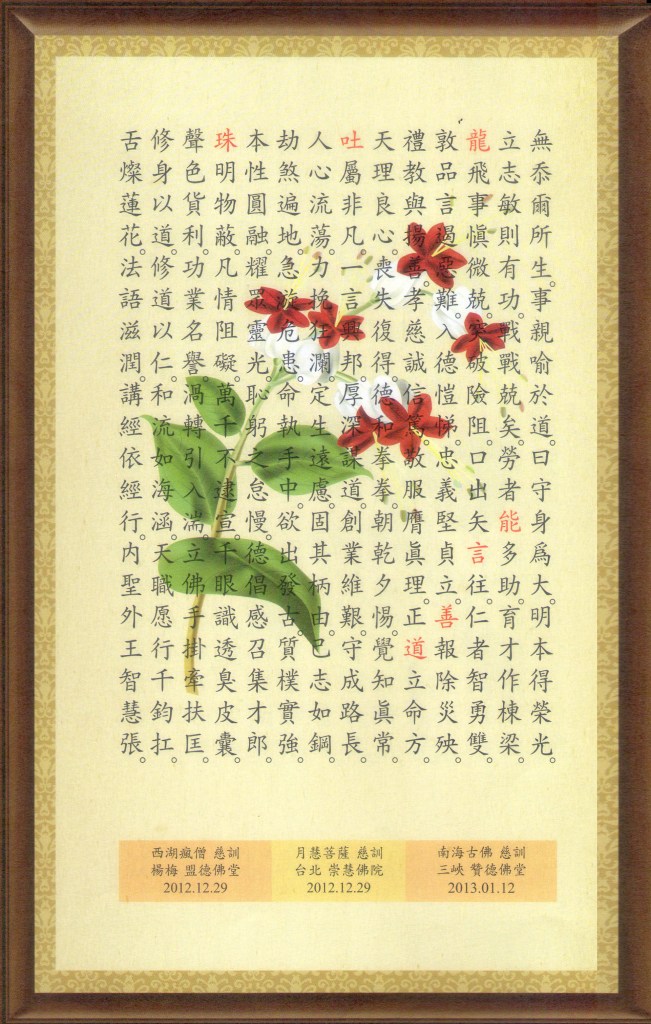 無忝爾所生。事親喻於道。曰守身爲大。明本得榮光。
立志敏則有功。戰戰兢矣。勞者能多助。育才作棟梁。
龍飛事慎微兢。突破險阻口出矢言往仁者智勇雙。
敦品言遏惡難。入德愷悌。忠義堅貞立。善報除災殃。
禮教與揚善孝慈誠信篤敬服膺眞理正道立命方。
天理良心。喪失復得德和。拳拳朝乾夕惕。覺知眞常。
吐屬非凡一言興邦。厚深謀道創業維艱。守成路長。
人心流蕩。力挽狂瀾。定生遠慮。固其柄由己志如鋼。
劫煞遍地。急漩危患。命執手中。欲出發古。質樸實強。
本性圓融。耀眾靈光。恥躬之怠慢。德倡感召集才郎。
珠明物蔽凡情阻礙。萬千不逮。宣千眼識透臭皮囊。
聲色貨利。功業名譽。渦轉引入湍。立佛手掛牽扶匡。
修身以道。修道以仁。和流如海涵。天職愿行千鈞扛。
舌燦蓮花。法語滋潤。講經依經行。内聖外王智慧張。
西湖瘋僧 慈訓
楊梅 盟德佛堂
2012.12.29
月慧菩薩 慈訓
台北 崇慧佛院
2012.12.29
南海古佛 慈訓
三峽 贊德佛堂
2013.01.12